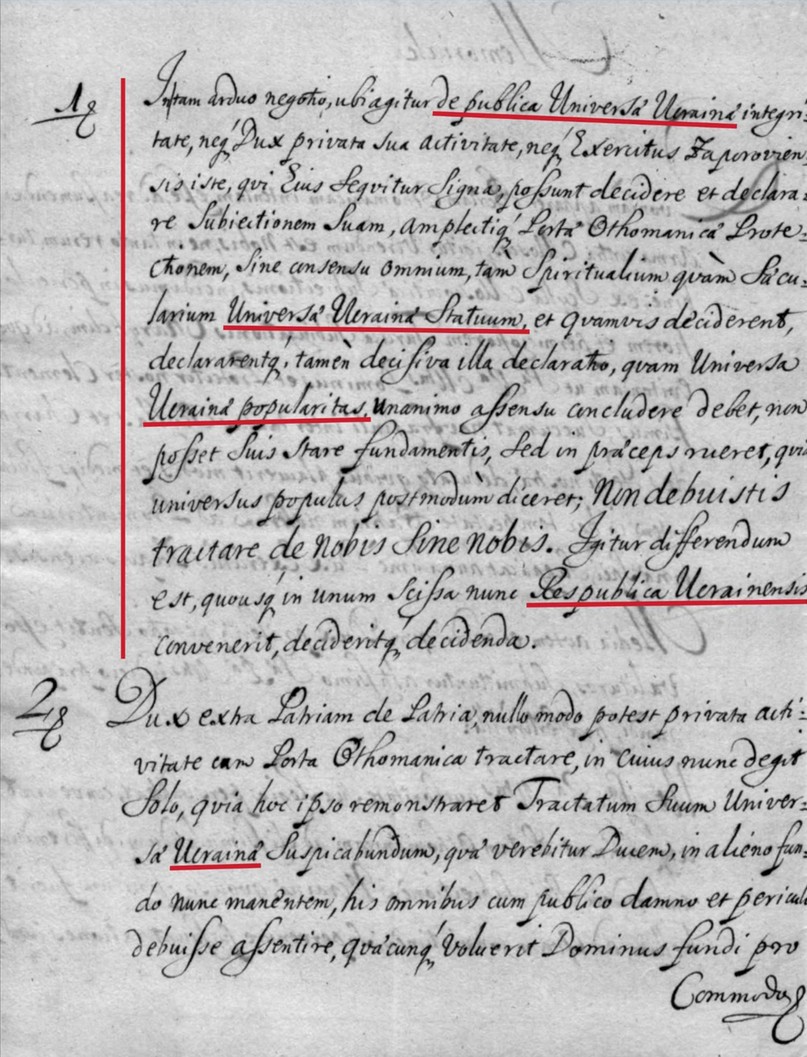 1º
In tam arduo negotio, ubi agitur de publica Universæ Ucrainæ integri:
tate, neq́ Dux privata sua activitate, neq́ Exercitus Zaporovien
sis iste, qui Eius sequitur Signa, possunt decidere et declara:
re Subiectionem Suam, amplectiq́ Portæ Othomanicæ Prote:
ctionem, sine consensu omnium, tàm Spiritualium quàm Sæcu:
larium Universæ Ucrainæ Statuum, et quamvis deciderent,
declararentq́, tamèn decisiva illa declaratio, quam Universa
Ucrainæ popularitas, unanimo assensu concludere debet, non
posset suis stare fundamentis, sed in præceps rueret, quia
universus populus postmodùm diceret; Non debuistis
tractare de nobis sine nobis. Igitur differendum
est, quousq́ in unum scissa nunc Respublica Ucrainensis
convenerit, decideritq́ decidenda.
2º
Dux extra Patriam de Patria, nullo modo potest privata acti:
vitate cum Porta Othomanica tractare, in cuius nunc degit
Solo, quia hoc ipso remonstraret Tractatum Suum Univer:
sæ Ucrainæ Suspicabundum, quæ verebitur Ducem, in alieno fun:
do nunc manentem, his omnibus cum publico damno et pericul
debuisse assentire, quæcunq́ Voluerit Dominus fundi pro
Commodo